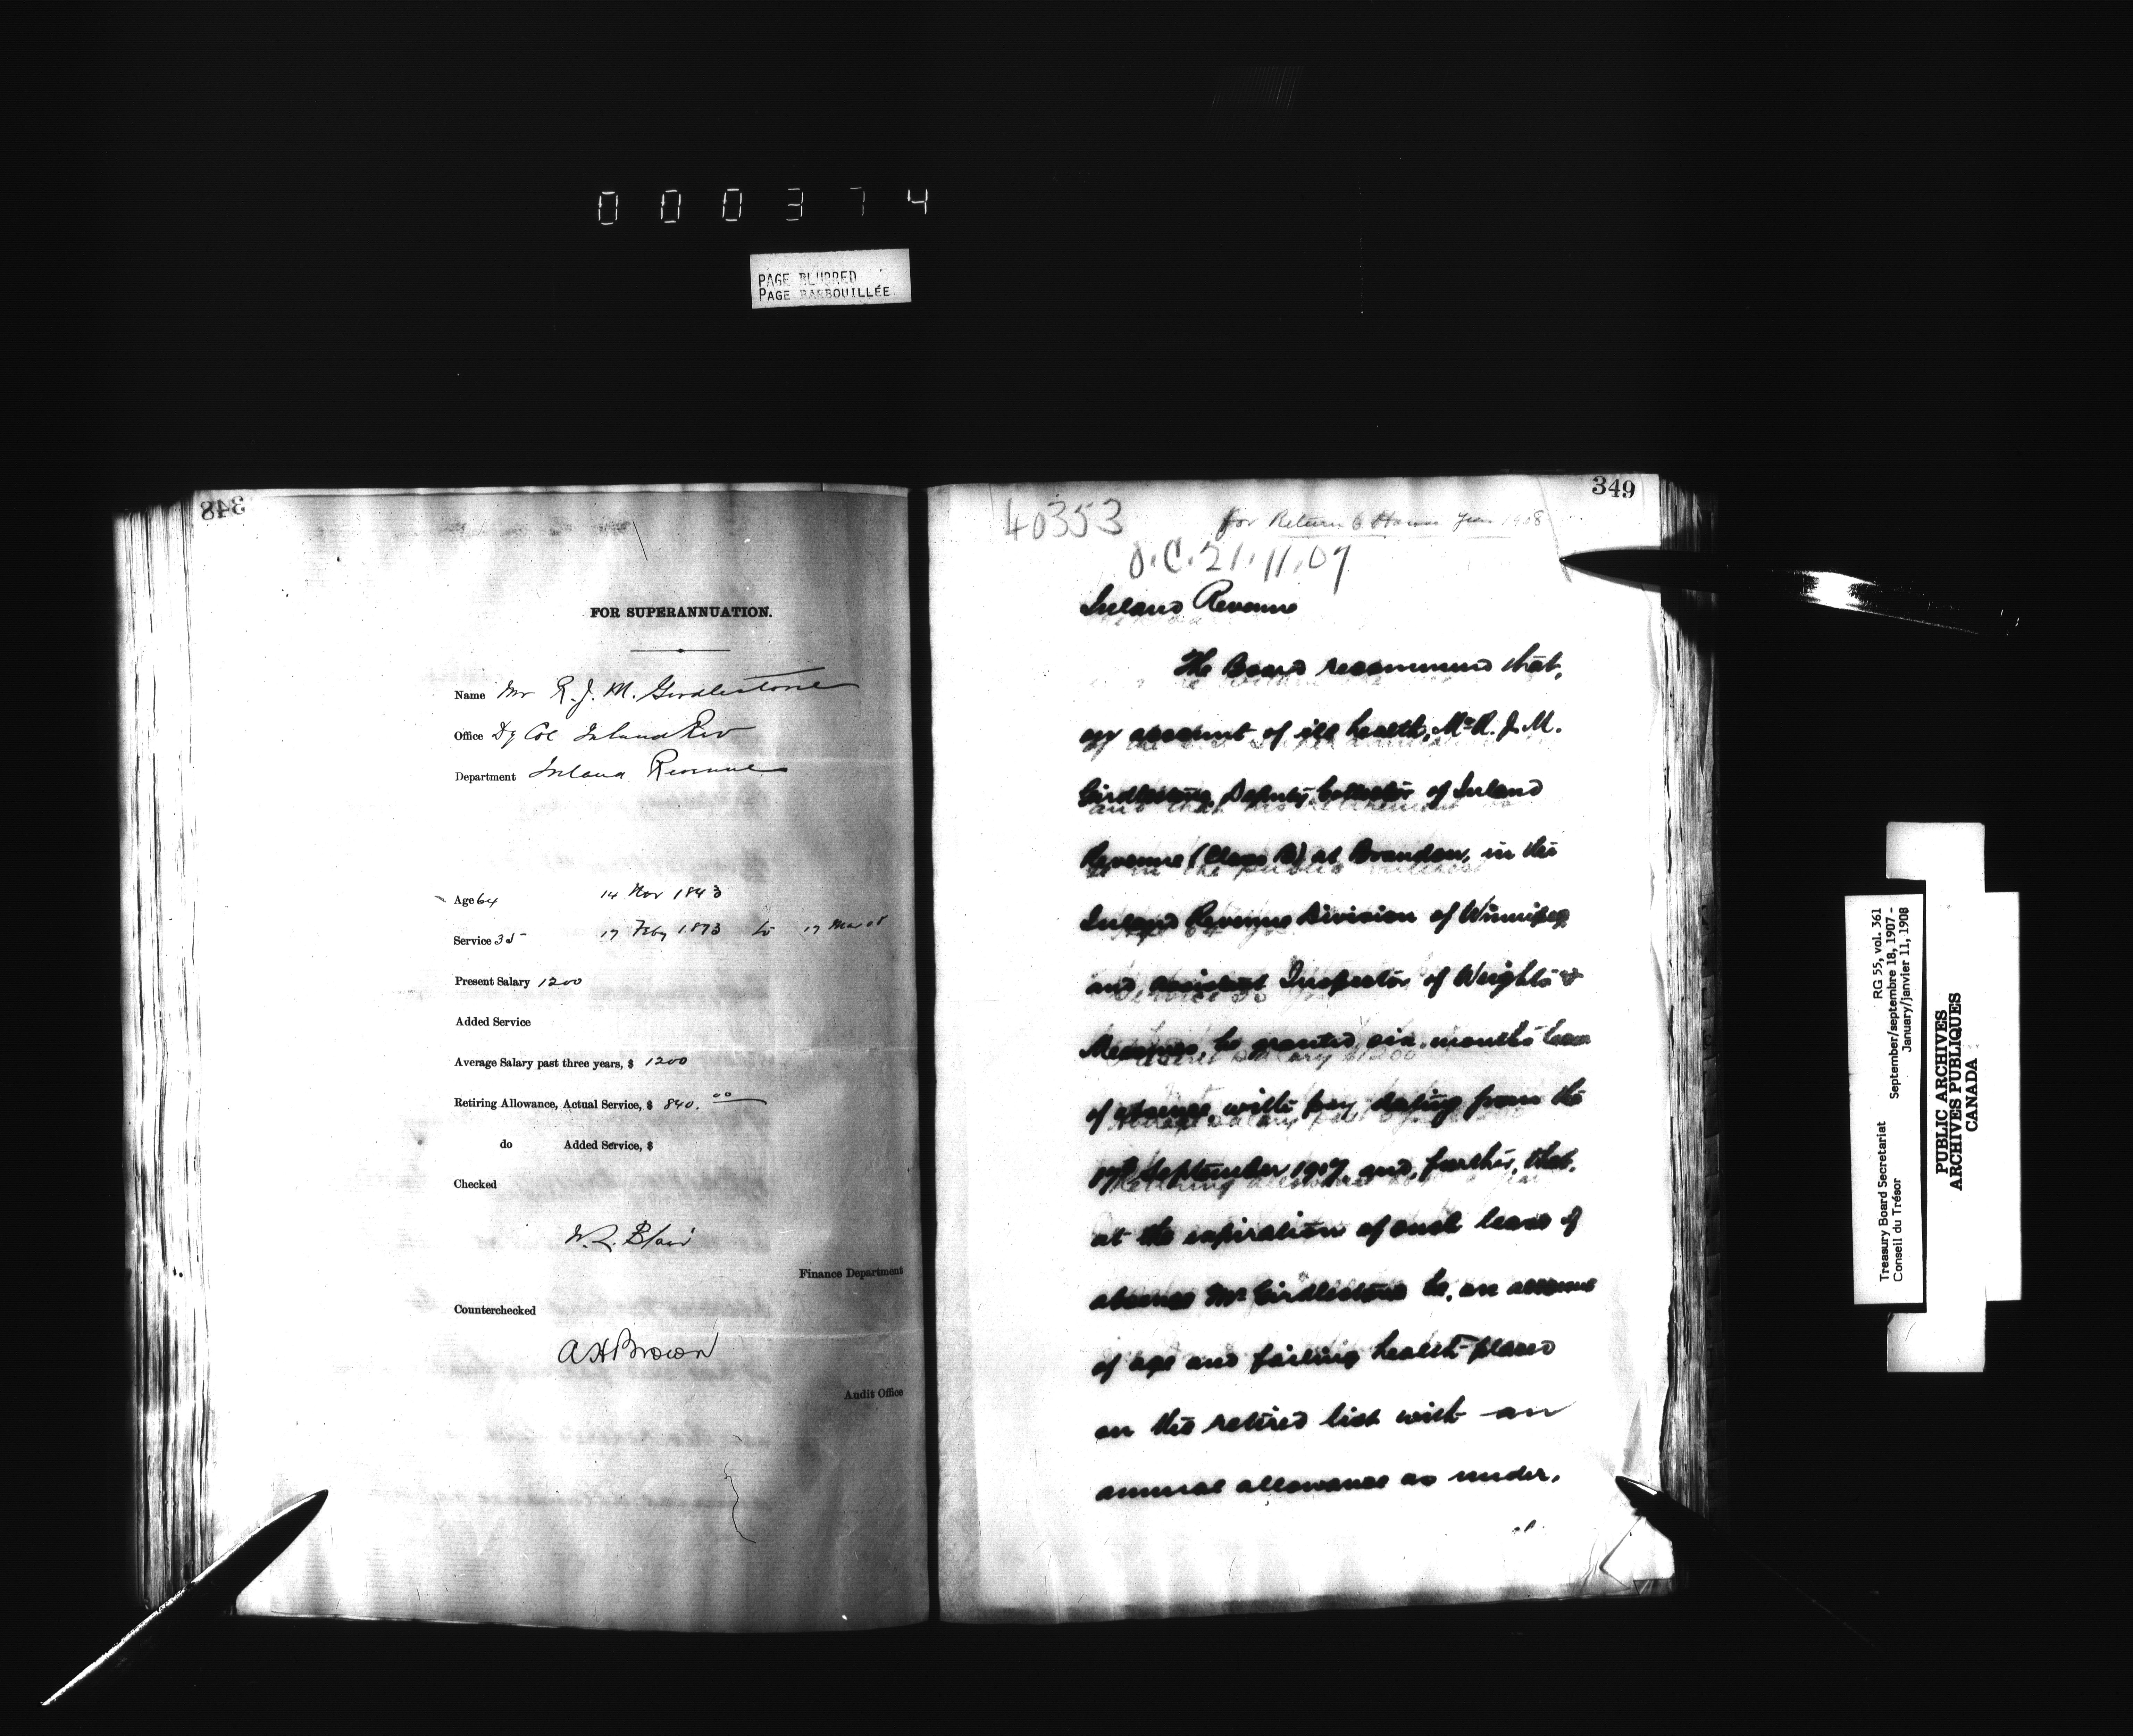 000374
PAGE BLURRED
PAGE BARBOUILLÉE
348
FOR SUPERANNUATION.
Name Mr R. J. M. Girdlestone
Office Dy Col Inland Rev
Department Inland Revenue
Age 64 14 Nov 1843
Service 35 17 Feby 1873 to 17 Mar 08
Present Salary 1200
Added Service
Average Salary past three years, $ 1200
Retiring Allowance, Actual Service, $ 840.00
do Added Service, $
Checked
W. L. Blair
Finance Department
Counterchecked
A H Brown
Audit Office
349
40353
for Return to House Jan 1908
O.C. 21.11.07
Inland Revenue
The Board recommend that,
on account of ill health, Mr R. J. M.
Girdlestone, Deputy Collector of Inland
Revenue (Class B) at Brandon, in the
Inland Revenue Division of Winnipeg
and assistant Inspector of Weights &
Measures be granted six months leave
of absence, with pay dating from the
17th September 1907, and, further, that,
at the expiration of such leave of
absence Mr Girdlestone be, on account
of age and failing health placed
on the retired list with an
annual allowance as under.
Treasury Board Secretariat RG 55, vol. 361
Conseil du Trésor September/septembre 18, 1907 -
January/janvier 11, 1908
PUBLIC ARCHIVES
ARCHIVES PUBLIQUES
CANADA